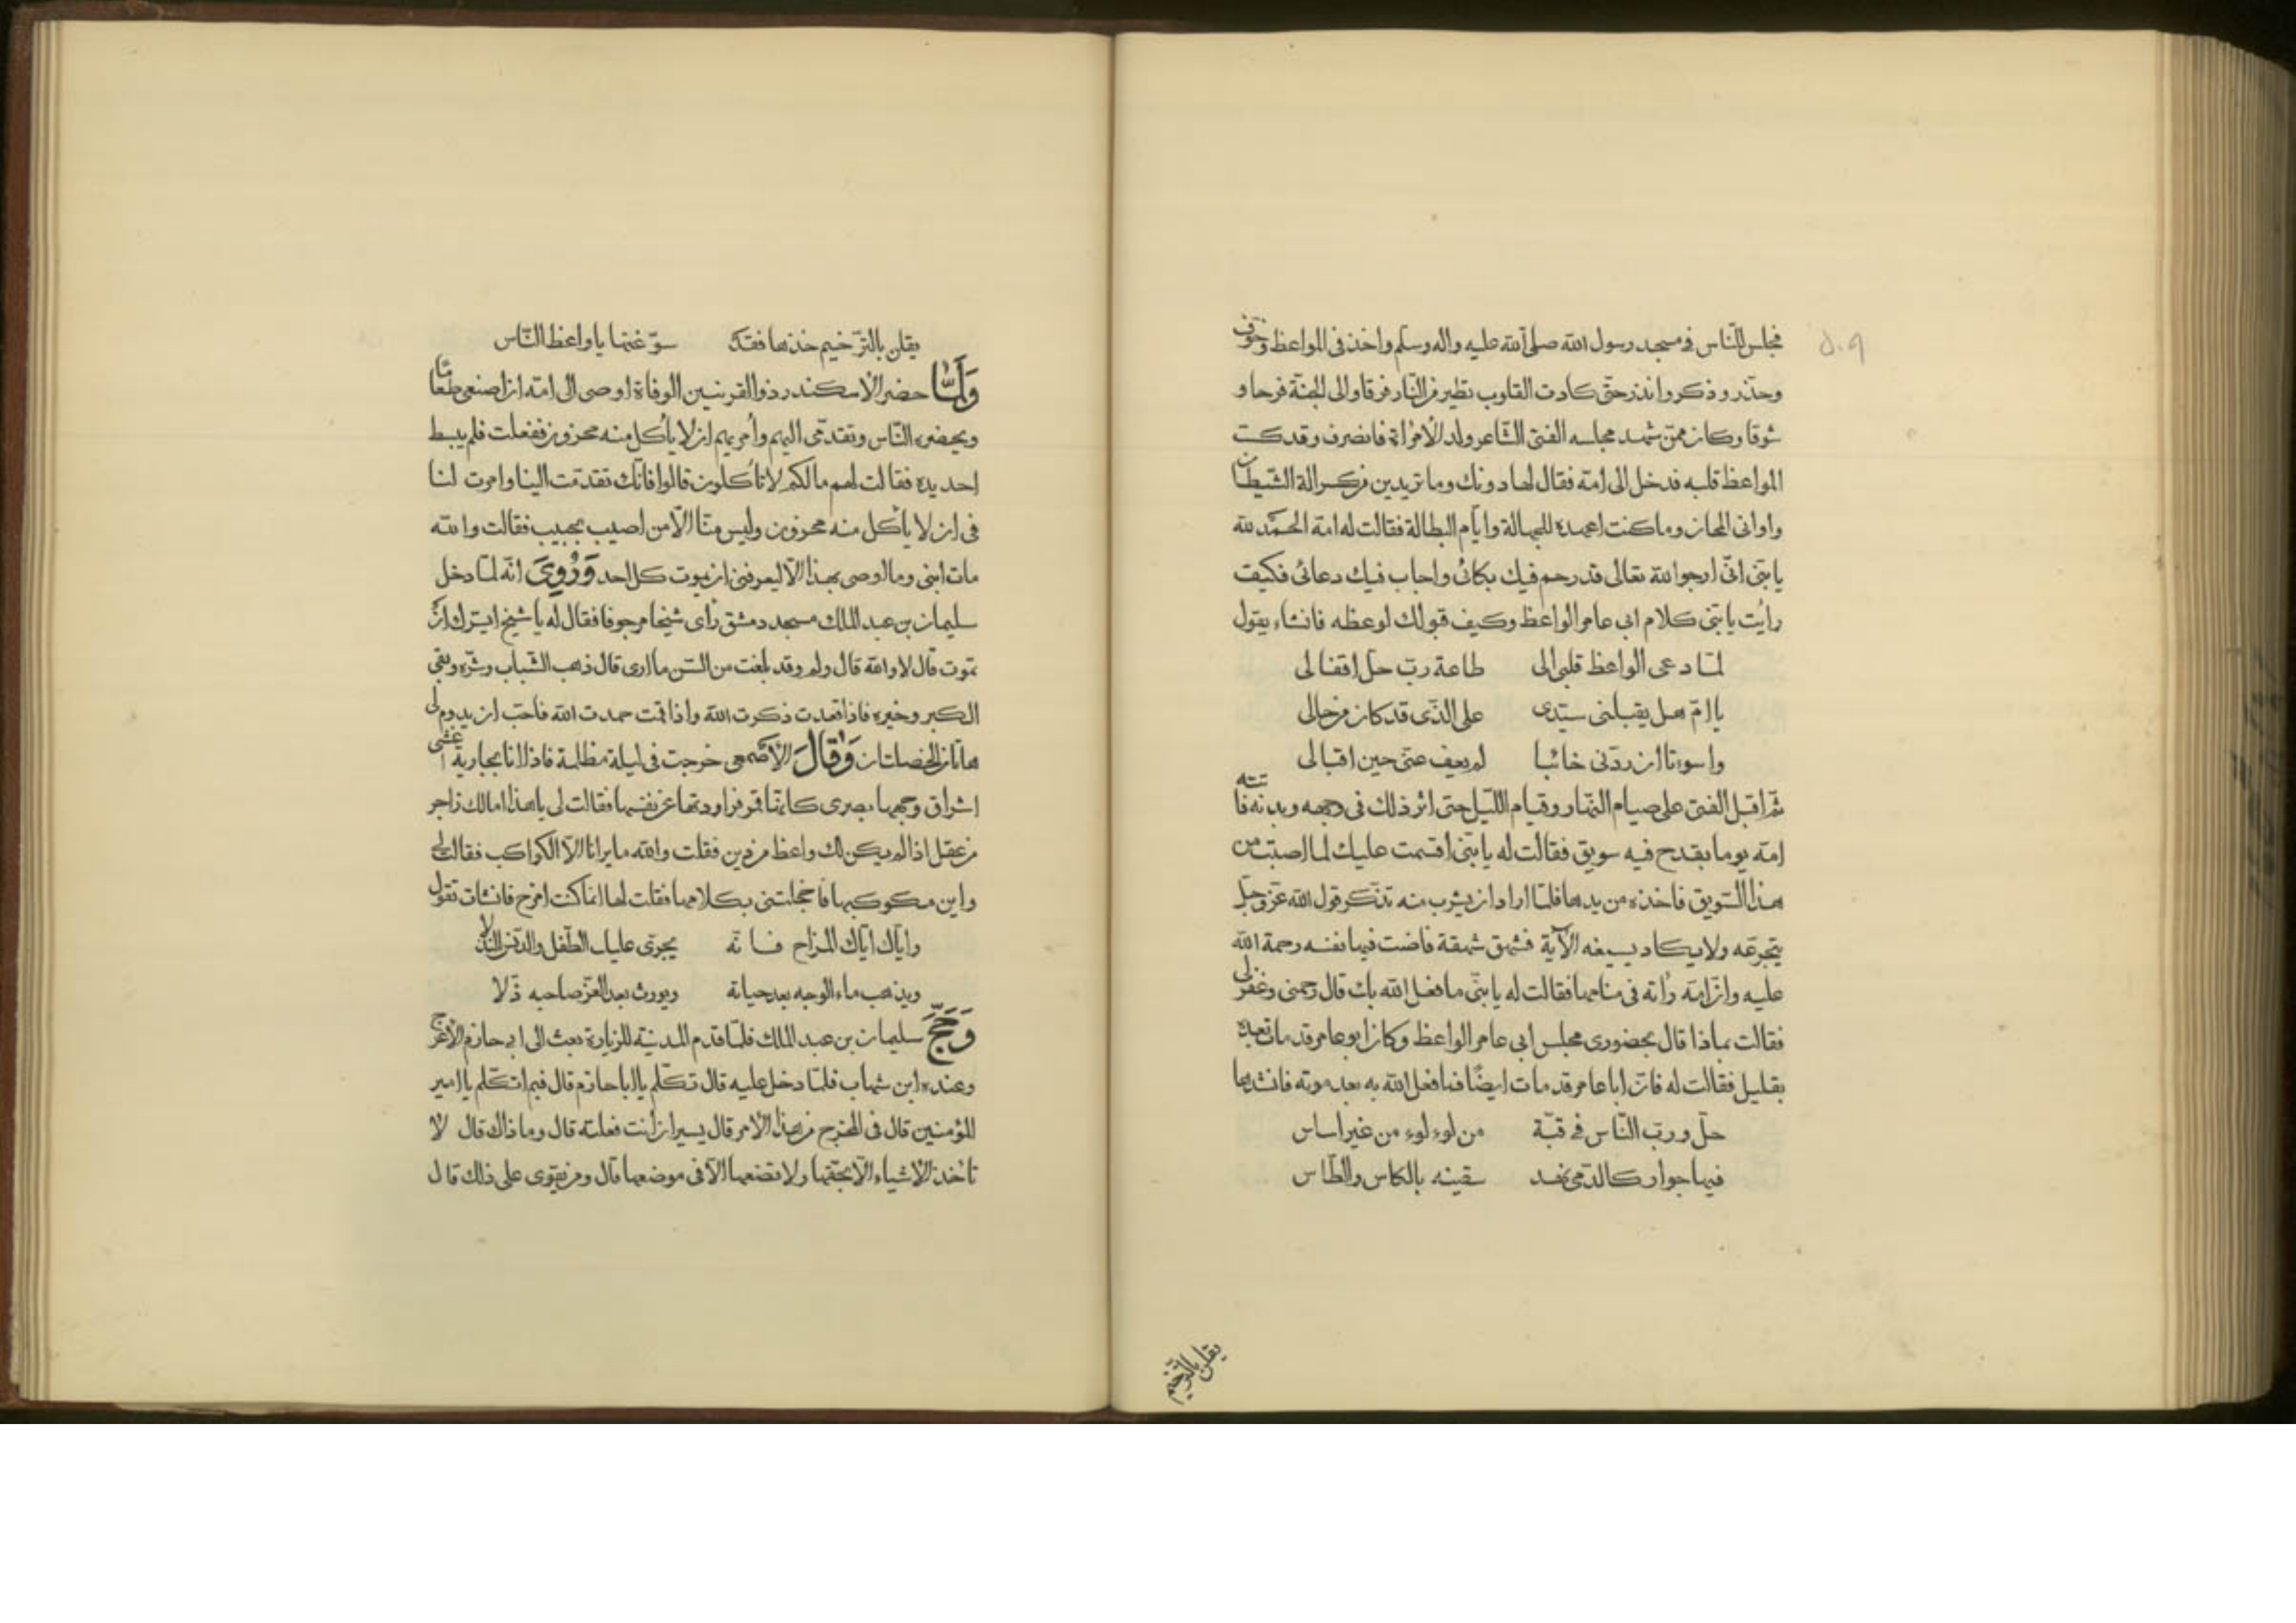 فجلس للنّاس في مسجد رسول الله صلى الله عليه واله وسلم واخذ في المواعظ وخوّف
وحذّر وذكر وانذر حتّى كادت القلوب تطير من النّار فرقا والى الجنّة فرحا و
شوقا وكان ممّن شهد مجلسه الفتى الشّاعر ولد الامرأة فانصرف وقد
المواعظ قلبه فدخل الى امّه فقال لها دونك وما تريدين من كسر الة الشّيطان
واوانى المجان وما كنت اعهده للجهالة وايّام البطالة فقالت له امّه الحمد لله
يا بنىّ انّى ارجو الله تعالى قد رحم فيك بكائى واجاب فيك دعائى فكيف
رأيت يا بنىّ كلام ابى عامر الواعظ وكيف قبولك لوعظه فانشاء يقول
لمّا دعى الواعظ قلبى الى طاعة ربّ حلّ اقفالى
يا امّ هل يقبلنى سيّدى على الّذى قد كان من حالى
واسوءتا ان ردّنى خائبا لم يعف عنّى حين اقبالى
ثم اقبل الفتى على صيام النّهار وقيام اللّيل حتى اثر ذلك في وجهه وبدنه فاتته
امّه يوما بقدح فيه سويق فقالت له يا بنىّ اقسمت عليك لما اصبت من
هذا السّويق فاخذه من يدها فلمّا اراد ان يشرب منه تذكّر قول الله عزّ وجلّ
يتجرّعه ولا يكاد يسيغه الآية فشهق شهقة فاضت فيها نفسه رحمة الله
عليه وانّ امّه رأته فى منامها فقالت له يا بنىّ ما فعل الله بك قال رحمنى وغفر لى
فقالت بماذا قال بحضورى مجلس ابى عامر الواعظ وكان ابو عامر قد مات بعده
بقليل فقالت له فانّ ابا عامر قد مات ايضًا فما فعل الله به بعد موته فانشدها
حلّ وربّ النّاس في قبّة من لوءلوء من غير اساس
فيها جوار كالدّمى نهد سقينه بالكاس والطّاس
يقلن بالتّرخيم
يقلن بالتّرخيم خذها فقد سوّغتها يا واعظ النّاس
وَلَمّا حضر الاسكندر ذو القرنين الوفاة اوصى الى امّه ان اصنعى طعامًا
ويحضره النّاس وتقدّمى اليهم وأمريهم ان لا يأكل منه محزون ففعلت فلم يبسط
احد يده فقالت لهم ما لكم لا تأكلون قالوا فانّك تقدّمت الينا وامرت لنا
فى ان لا يأكل منه محزون وليس منّا الّا من اصيب بحبيب فقالت والله
مات ابنى وما اوصى بهذا الّا ليعرفنى ان يموت كل احد وَرُوِيَ انّه لمّا دخل
سليمان بن عبد الملك مسجد دمشق رأى شيخا مرجوفا فقال له يا شيخ ايسرّك ان
تموت قال لا والله قال ولم وقد بلغت من السّن ما ارى قال ذهب الشّباب وشرّه وبقى
الكبر وخيره فاذا قعدت ذكرت الله واذا قمت حمدت الله فاحبّ ان يدوم لى
هاتان الخصلتان وَقَالَ الاصمعى خرجت فى ليلة مظلمة فاذا انا بجارية اغشى
اشراق وجهها بصرى كانّها قمر فراودتها عن نفسها فقالت لى يا هذا امالك زاجر
من عقل اذا لم يكن لك واعظ من دين فقلت والله ما يرانا الّا الكواكب فقالت لى
واين مكوكبها فاخجلتنى بكلامها فقلت لها انما كنت امزح فانشات تقول
وايّاك ايّاك المزاح فانّه يجرّى عليك الطّفل والدّنس النذلا
ويذهب ماء الوجه بعد حياته ويورث بعد العزّ صاحبه ذّلا
وَحَجَّ سليمان بن عبد الملك فلمّا قدم المدينة للزيارة بعث الى ابى حازم الاعرج
وعنده ابن شهاب فلمّا دخل عليه قال تكلّم يا ابا حازم قال فيم اتكلّم يا امير
المؤمنين قال فى المخرج من هذا الامر قال يسير ان انت فعلته قال وما ذاك قال لا
تأخذ الاشياء الّا بحقّها ولا تضعها الّا فى موضعها قال ومن يقوى على ذلك قال